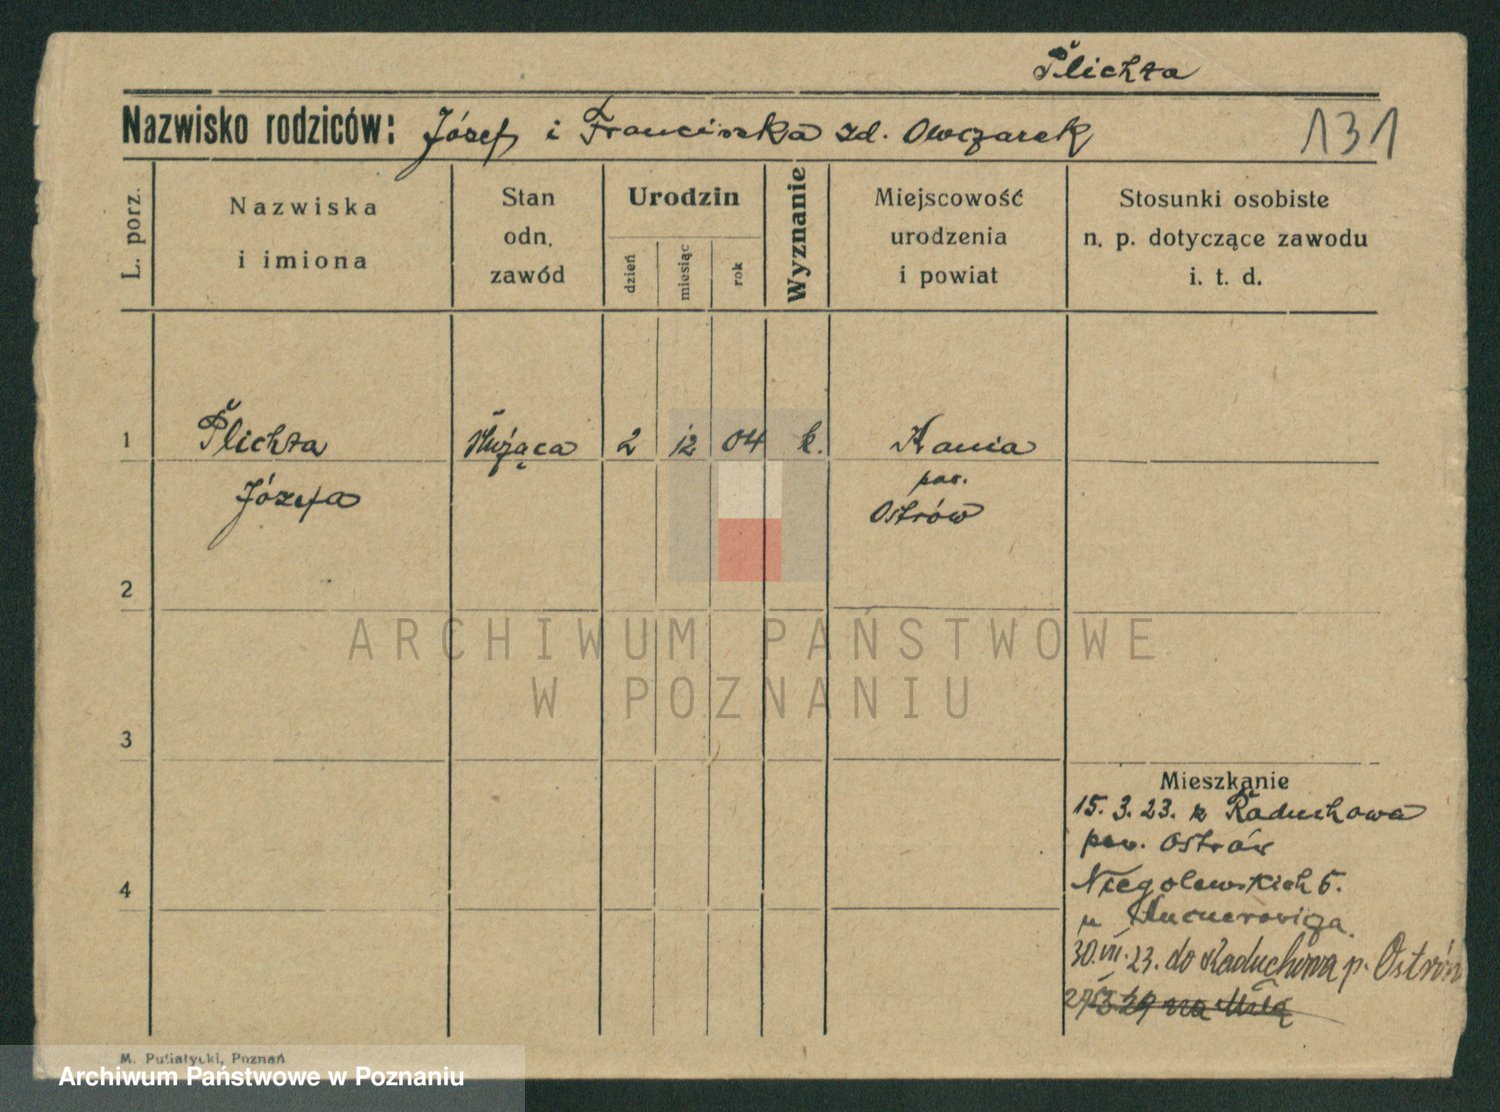 Plichta
Nazwisko rodziców: Józef i Franciszka zd. Owczarek
131
L. porz.
Nazwiska
i imiona
Stan
odn.
zawód
Urodzin
dzień
miesiąc
rok
Wyznanie
Miejscowość
urodzenia
i powiat
Stosunki osobiste
n. p. dotyczące zawodu
i. t. d.
1 Plichta służąca 2 12 04 k. Kania
pow.
Józefa Ostrów
2
ARCHIWUM PAŃSTWOWE
W POZNANIU
3
Mieszkanie
15. 3. 23. z Raduchowa
pow. Ostrów
4
Niegolewskich 5.
u
30. VII. 23. do Raduchowa p. Ostrów
29 na
M. Putiatycki, Poznań
Archiwum Państwowe w Poznaniu